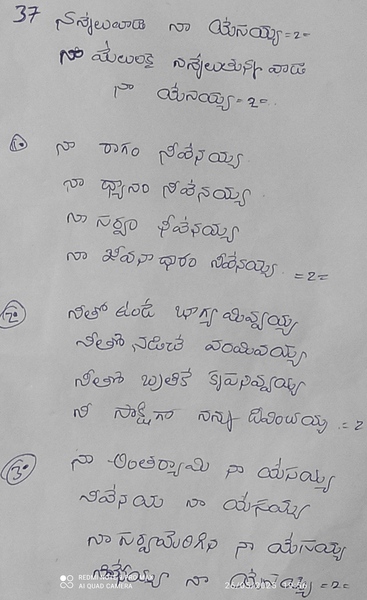 37 నన్నేలువాడా నా యేసయ్య =2=
నా మేలుకై నన్నేలుతున్న వాడా
నా యేసయ్య =2=
1 నా రాగం నీవేనయ్య
నా ధ్యానం నీవేనయ్య
నా సర్వం నీవేనయ్య
నా జీవనాధారం నీవేనయ్య =2=
2 నీతో ఉండే భాగ్య మివ్వయ్య
నీతో నడిచే వరమివయ్య
నీతో బ్రతికే కృపనివ్వయ్య
నీ సాక్షిగా నన్ను దీవించయ్య =2
3 నా అంతర్యామి నా యేసయ్య
నీవేనయ నా యేసయ్య
నా సర్వమెరిగిన నా యేసయ్య
నా యేసయ్య =2=
REDMI NOTE
AI QUAD CAMERA